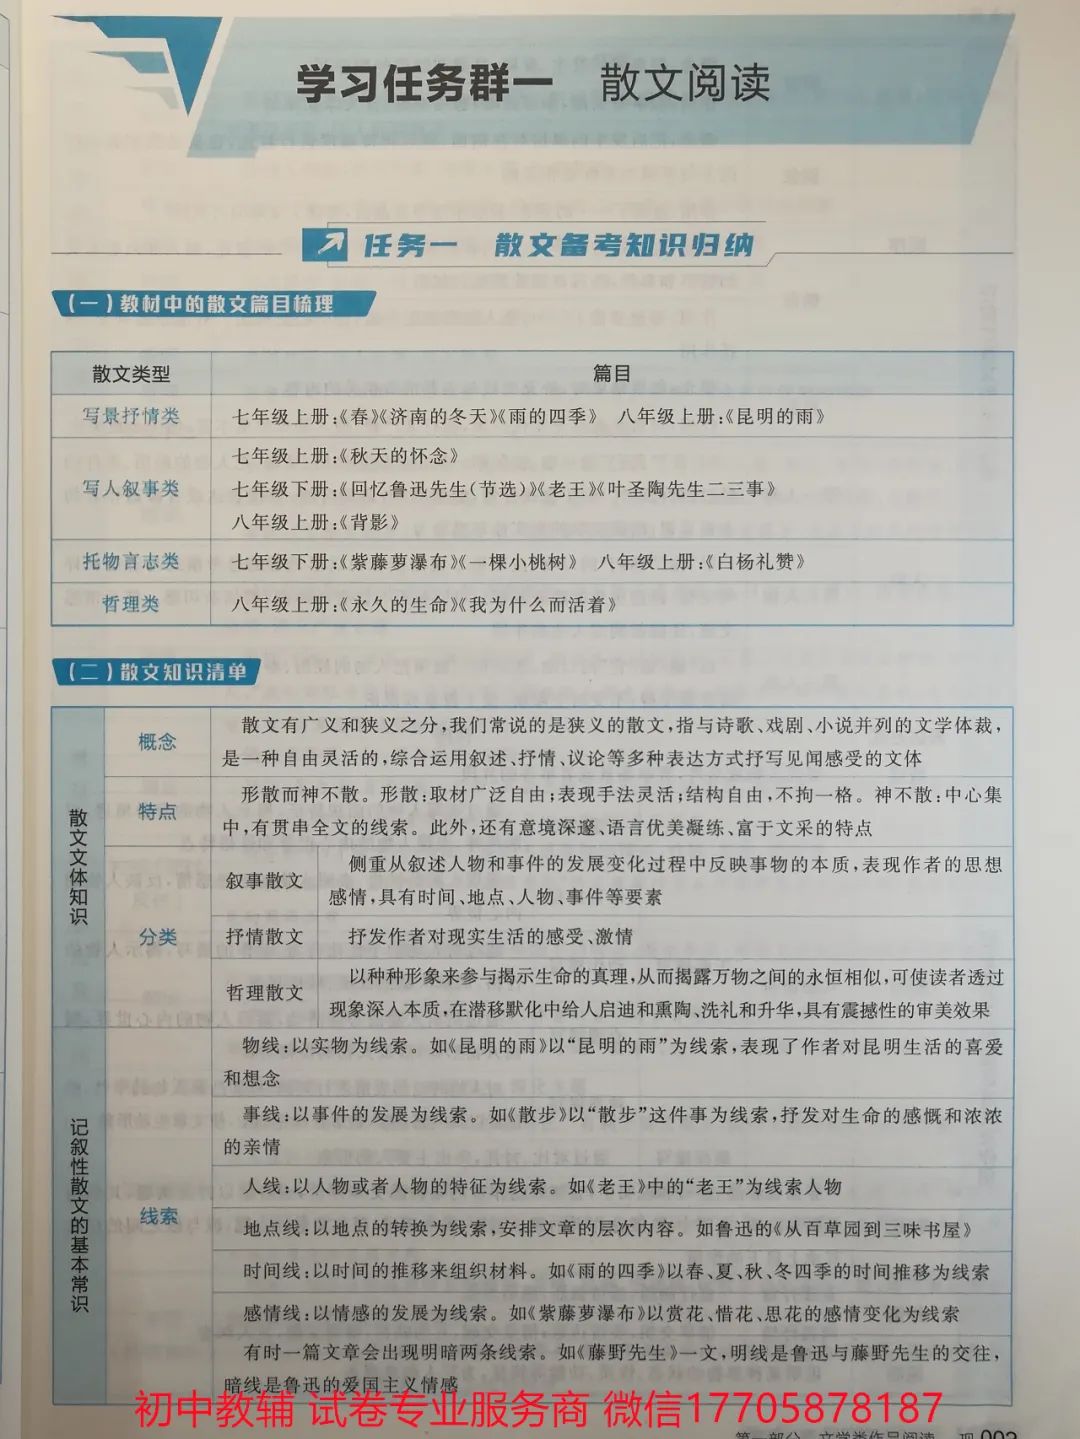 学习任务群一 散文阅读
任务一 散文备考知识归纳
(一)教材中的散文篇目梳理
散文类型 篇目
写景抒情类 七年级上册:《春》《济南的冬天》《雨的四季》 八年级上册:《昆明的雨》
写人叙事类
七年级上册:《秋天的怀念》
七年级下册:《回忆鲁迅先生(节选)》《老王》《叶圣陶先生二三事》
八年级上册:《背影》
托物言志类 七年级下册:《紫藤萝瀑布》《一棵小桃树》 八年级上册:《白杨礼赞》
哲理类 八年级上册:《永久的生命》《我为什么而活着》
(二)散文知识清单
散文文体知识
概念
散文有广义和狭义之分,我们常说的是狭义的散文,指与诗歌、戏剧、小说并列的文学体裁,
是一种自由灵活的,综合运用叙述、抒情、议论等多种表达方式抒写见闻感受的文体
特点
形散而神不散。形散:取材广泛自由;表现手法灵活;结构自由,不拘一格。神不散:中心集
中,有贯串全文的线索。此外,还有意境深邃、语言优美凝练、富于文采的特点
分类
叙事散文
侧重从叙述人物和事件的发展变化过程中反映事物的本质,表现作者的思想
感情,具有时间、地点、人物、事件等要素
抒情散文 抒发作者对现实生活的感受、激情
哲理散文
以种种形象来参与揭示生命的真理,从而揭露万物之间的永恒相似,可使读者透过
现象深入本质,在潜移默化中给人启迪和熏陶、洗礼和升华,具有震撼性的审美效果
记叙性散文的基本常识
线索
物线:以实物为线索。如《昆明的雨》以“昆明的雨”为线索,表现了作者对昆明生活的喜爱
和想念
事线:以事件的发展为线索。如《散步》以“散步”这件事为线索,抒发对生命的感慨和浓浓
的亲情
人线:以人物或者人物的特征为线索。如《老王》中的“老王”为线索人物
地点线:以地点的转换为线索,安排文章的层次内容。如鲁迅的《从百草园到三味书屋》
时间线:以时间的推移来组织材料。如《雨的四季》以春、夏、秋、冬四季的时间推移为线索
感情线:以情感的发展为线索。如《紫藤萝瀑布》以赏花、惜花、思花的感情变化为线索
有时一篇文章会出现明暗两条线索。如《藤野先生》一文,明线是鲁迅与藤野先生的交往,
暗线是鲁迅的爱国主义情感
初中教辅 试卷专业服务商 微信17705878187
第一部分 文学类作品阅读